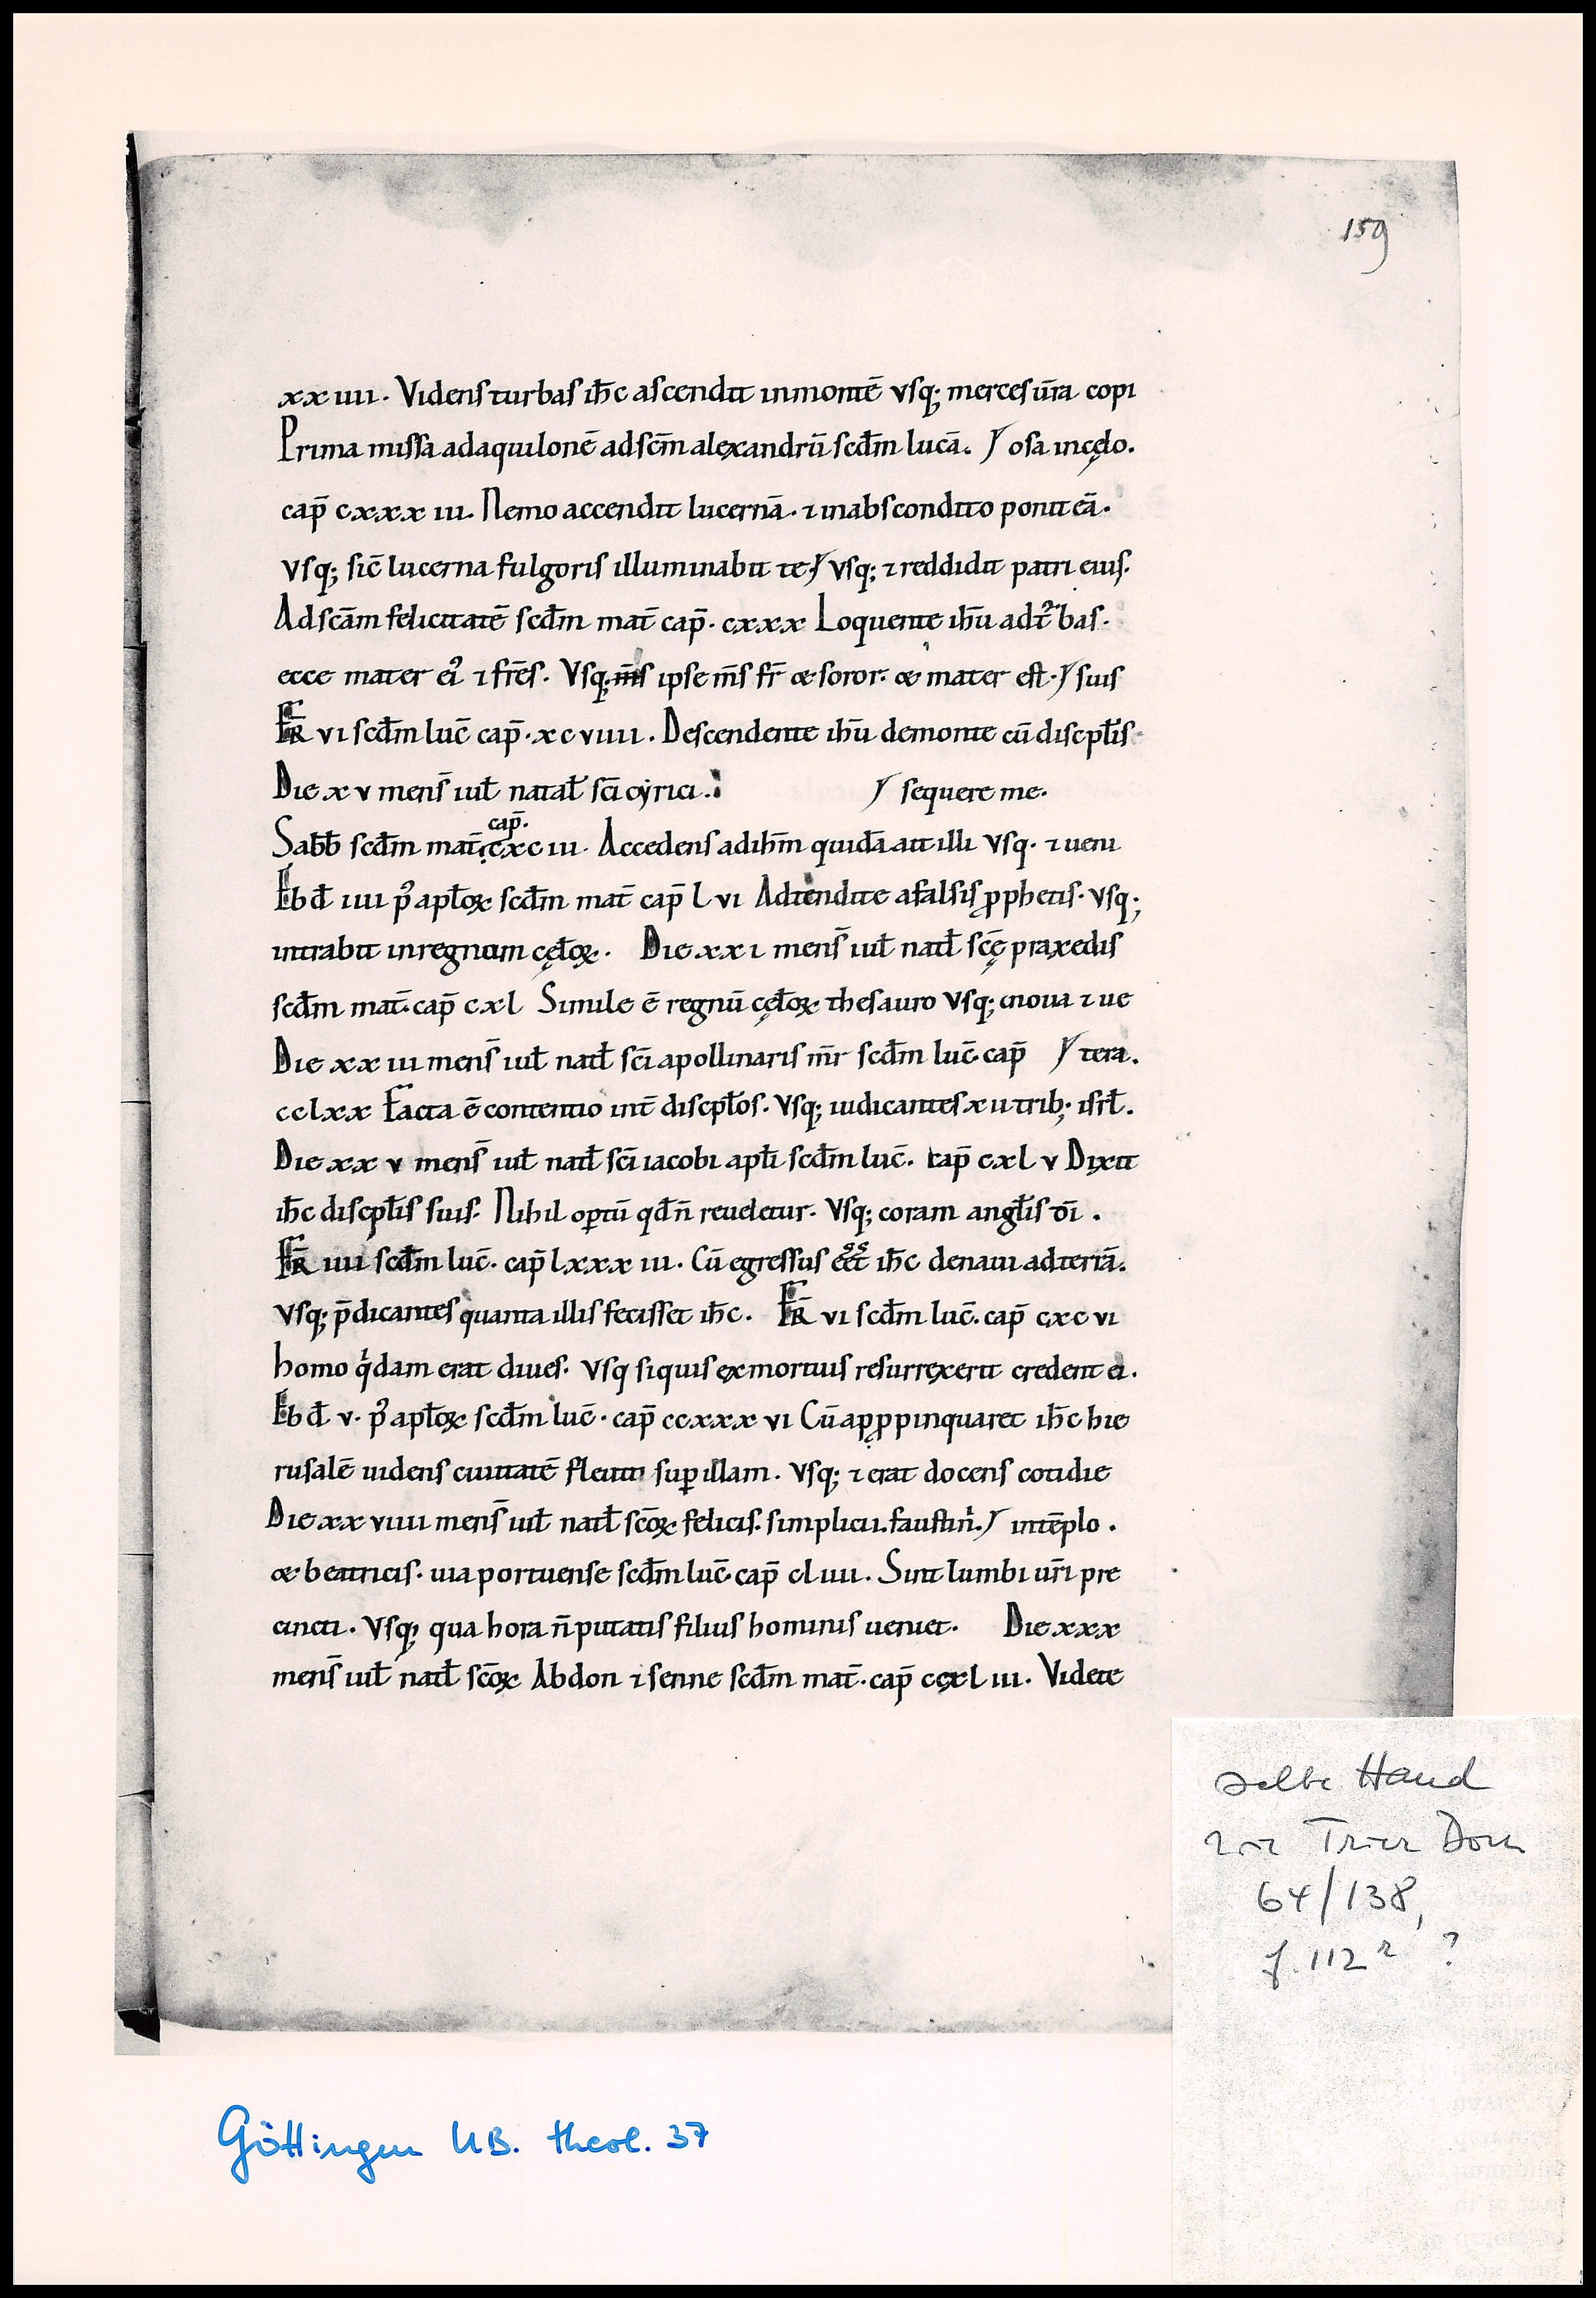 159
xxiiii. Videns turbas ih̄c ascendit inmontē vsq; merces ūra copi
Prima missa adaquilonē adsc̄m alexandrū scd̄m lucā. / osa incęlo.
cap̄ cxxxiii. Nemo accendit lucernā. ⁊ inabscondito ponit eā.
vsq; sic̄ lucerna fulgoris illuminabit te / vsq; ⁊ reddidit patri eius.
Adscām felicitatē scd̄m mat̄ cap̄. cxxx Loquente ih̄u adt᷑bas.
ecce mater ei᾿ ⁊ fr̄es. Vsq; ipse m̄s fr̄ & soror. & mater est. / suis
FR̄ vi scd̄m luc̄ cap̄. xcviiii. Descendente ih̄u demonte cū discpl̄is
Die xv mens̄ iul̄ natal̄ sc̄i cẏrici. / sequere me.
cap̄.
Sabb̄ scd̄m mat̄. cxciii. Accedens adih̄m quidā ait illi vsq. ⁊ ueni
Ebd̄ iiii p᾿ apl̄oꝝ scd̄m mat̄ cap̄ lvi Adtendite afalsis ꝓphetis. vsq;
intrabit inregnum cęl̄oꝝ. Die xxi mens̄ iul̄ natl̄ sc̄ę praxedis
scd̄m mat̄. cap̄ cxl Simile ē regnū cęl̄oꝝ thesauro vsq; noua ⁊ ue
Die xxiii mens̄ iul̄ natl̄ sc̄i apollinaris m̄r scd̄m luc̄. cap̄ / tera.
cclxx Facta ē contentio int̄ discpl̄os. Vsq; iudicantes xii trib; isrl̄.
Die xxv mens̄ iul̄ natl̄ sc̄i iacobi apl̄i scd̄m luc̄. cap̄ cxlv Dixit
ih̄c discpl̄is suis. Nihil opt̄ū qd̄ n̄ reueletur. Vsq; coram angl̄is d̄i.
FR̄ iiii scd̄m luc̄. cap̄ lxxxiii. Cū egressus eēt ih̄c denaui adterrā.
vsq; p̄dicantes quanta illis fecisset ih̄c. FR̄ vi scd̄m luc̄. cap̄ cxcvi
homo qͥdam erat diues. Vsq siquis exmortuis resurrexerit credent ei.
Ebd̄ v. p᾿ apl̄oꝝ scd̄m luc̄. cap̄ ccxxxvi Cū apꝓpinquaret ih̄c hie
rusalē uidens ciuitatē fleuit suꝑ illam. Vsq; ⁊ erat docens cotidie
Die xxviiii mens̄ iul̄ natl̄ sc̄oꝝ felicis. simplicii. faustin̄. / intēplo.
& beatricis. uia portuense scd̄m luc̄. cap̄ cliiii. Sint lumbi ūri pre
cincti. Vsq; qua hora n̄ putatis filius hominis ueniet. Die xxx
mens̄ iul̄ natl̄ sc̄oꝝ Abdon ⁊ senne scd̄m mat̄. cap̄ ccxliii. Videte
selbe Hand
wie Trier Dom
64/138,
f. 112 r ?
Göttingen UB. theol. 37